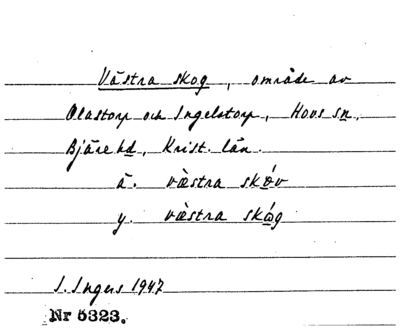 Västra skog, område av
Olastorp och Ingelstorp, Hovs sn,
Bjäre hd, Krist. län.
ä. væ̀stra skóv
y. væ̀stra skǿg
I. Ingers 1947
Nr 5323.